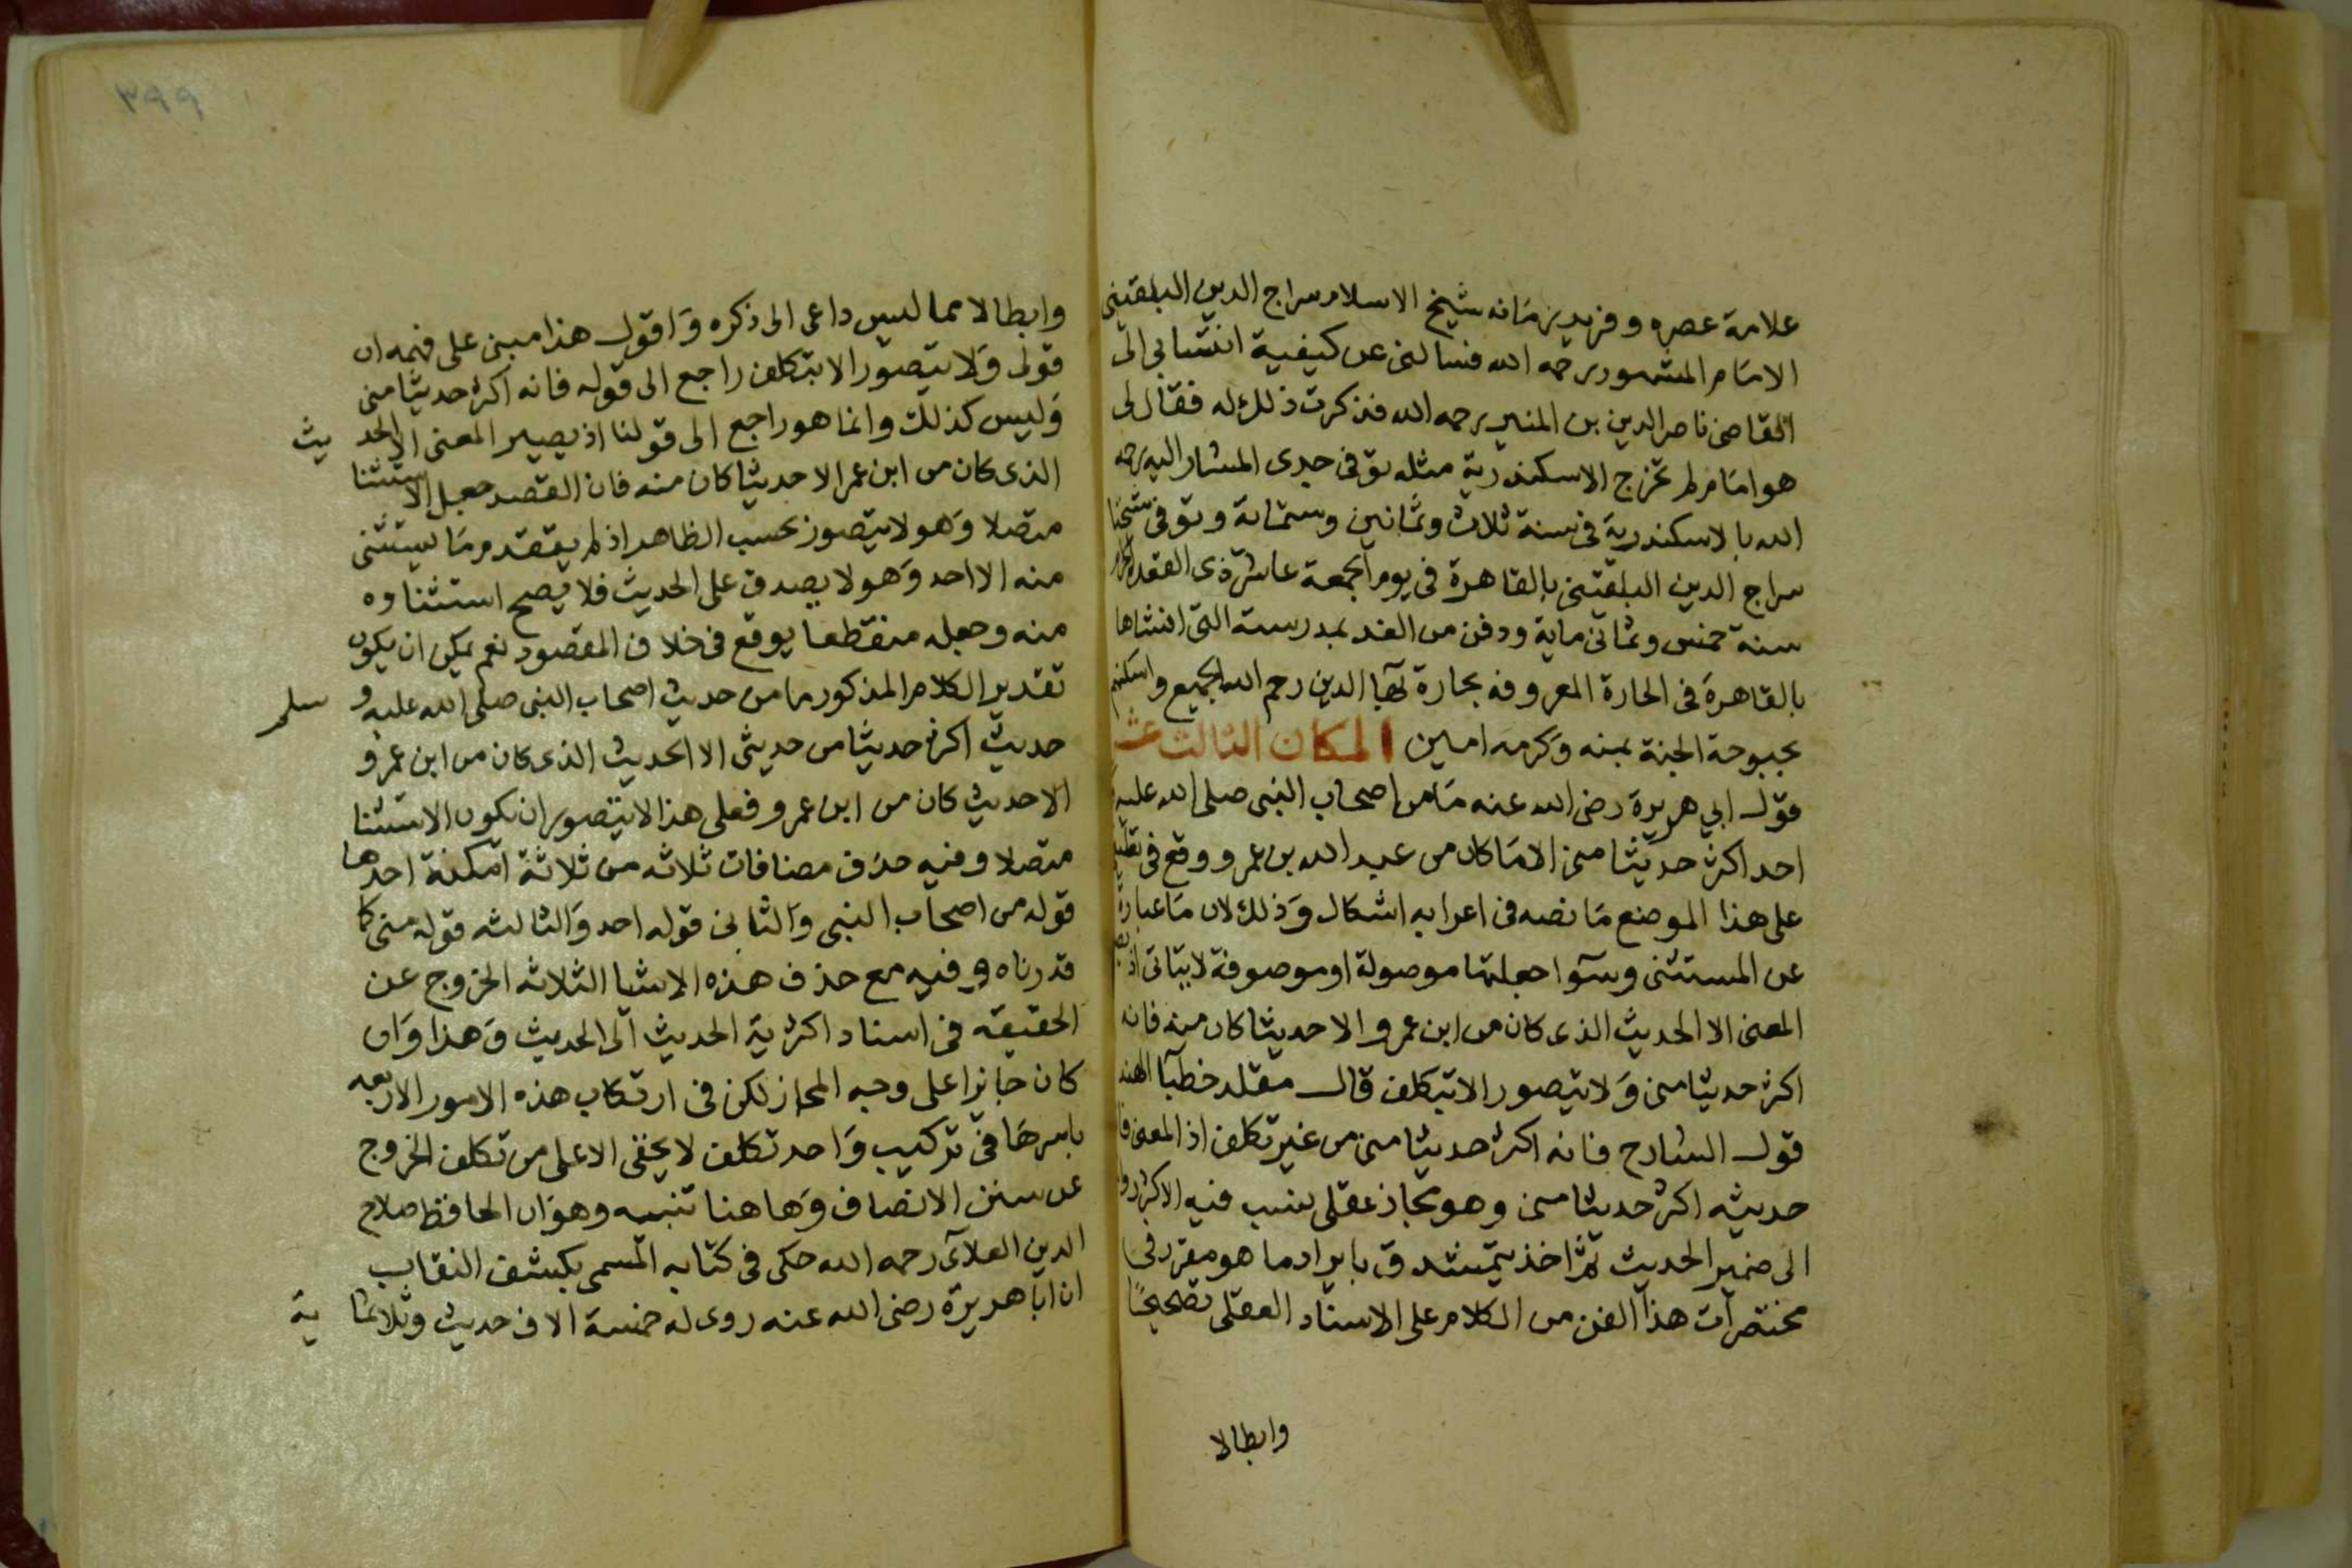 علامة عصره وفريد زمانه شيخ الاسلام سراج الدين البلقينى
الامام المشهور رحمه الله فسالنى عن كيفية انتسابى الى
القاضى ناصر الدين بن المنير رحمه الله فذكرت ذلك له فقال لى
هو امام لم تخرج الاسكندرية مثله توفى جدى المشار اليه رحمه
الله بالاسكندرية فى سنة ثلاث وثمانين وستماية وتوفى شيخنا
سراج الدين البلقينى بالقاهرة فى يوم الجمعة عاشر ذى القعدة الحرام
سنة خمس وثمانى ماية ودفن من الغد بمدرسته التى انشاها
بالقاهرة فى الحارة المعروفه بحارة بهآ الدين رحم الله الجميع واسكنهم
بحبوحة الجنة بمنه وكرمه امين المكان الثالث عشر
قول ابي هريرة رضى الله عنه ما من اصحاب النبى صلى الله عليه
احد اكثر حديثا منى الا ما كان من عبد الله بن عمرو ووقع فى تعليقى
على هذا الموضع ما نصه فى اعرابه اشكال وذلك لان ما عبارة
عن المستثنى وسوآ جعلتها موصولة او موصوفة لا يتاتى اذ يصير
المعنى الا الحديث الذى كان من ابن عمرو الا حديثا كان منه فانه
اكثر حديثا منى ولا يتصور الا بتكلف قال مقلد خطبآ الهند
قول الشارح فانه اكثر حديثا منى من غير تكلف اذ المعنى فان
حديثه اكثر حديثا منى وهو مجاز عقلى ينسب فيه الاكثر
الى ضمير الحديث ثم اخذ يتمشدق بايراد ما هو مقرر فى
مختصرات هذا الفن من الكلام على الاسناد العقلى تصحيحًا
وابطالا
٣٩٩
وابطالا مما ليس داعى الى ذكره واقول هذا مبنى على فهمه ان
قولى ولا يتصور الا بتكلف راجع الى قوله فانه اكثر حديثا منى
وليس كذلك وانما هو راجع الى قولنا اذ يصير المعنى الا الحديث
الذى كان من ابن عمر الا حديثا كان منه فان القصد جعل الاستثنا
متصلا وهو لا يتصور بحسب الظاهر اذ لم يتقدم ما يستثنى
منه الا احد وهو لا يصدق على الحديث فلا يصح استثناوه
منه وجعله منقطعا يوقع فى خلاف المقصود نعم يمكن ان يكون
تقدير الكلام المذكور ما من حديث اصحاب النبى صلى الله عليه وسلم
حديث اكثر حديثا من حديثى الا الحديث الذى كان من ابن عمرو
الا حديث كان من ابن عمرو فعلى هذا لا يتصور ان يكون الاستثنا
متصلا وفيه حذف مضافات ثلاثه من ثلاثة امكنة احدها
قوله من اصحاب النبى والثانى قوله احد والثالثه قوله منى كما
قدرناه وفيه مع حذف هذه الاشيا الثلاثه الخروج عن
الحقيقه فى اسناد اكثرية الحديث الى الحديث وهذا وان
كان جايزا على وجه المجاز لكن فى ارتكاب هذه الامور الاربعه
باسرها فى تركيب واحد تكلف لا يخفى الا على من تكلف الخروج
عن سنن الانصاف وها هنا تنبيه وهو ان الحافظ صلاح
الدين العلآئ رحمه الله حكى فى كتابه المسمى بكشف النقاب
ان ابا هريرة رضى الله عنه روى له خمسة الاف حديث وثلاثماية